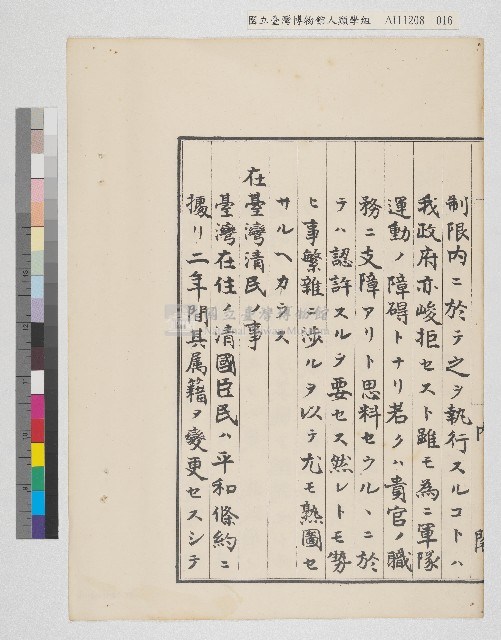 國立臺灣博物館人類學組 AH1208 016
制限内ニ於テ之ヲ執行スルコトハ
我政府亦峻拒セスト雖モ為ニ軍隊
運動ノ障碍トナリ若クハ貴官ノ職
務ニ支障アリト思料セラルヽニ於
テハ認許スルヲ要セス然レトモ勢
ヒ事繁雑ニ渉ルヲ以テ尤モ熟圖セ
サルヘカラス
在臺灣清民ノ事
臺灣在住ノ清國臣民ハ平和條約ニ
據リ二年間其属籍ヲ變更セスシテ
國立臺灣博物館